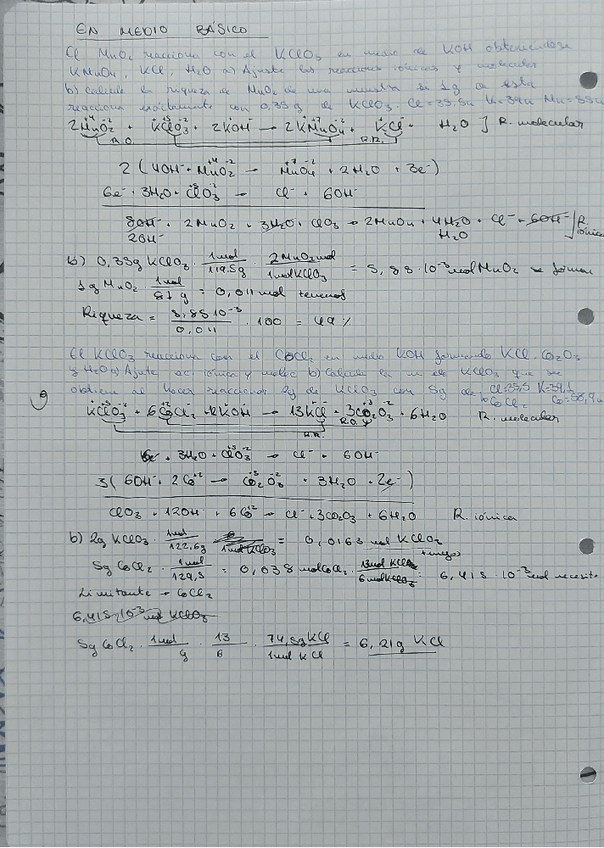 EN MEDIO BÁSICO
El MnO2 reacciona con el KClO3 en medio de KOH obteniendose
KMnO4, KCl, H2O a) Ajuste las reacciones iónicas y molecular
b) Calcule la riqueza de MnO2 de una muestra si 1g de esta
reacciona exactamente con 0,35g de KClO3. Cl=35.5u K=39u Mn=55u
2MnO2 + KClO3 + 2KOH → 2KMnO4 + KCl + H2O ] R. molecular
2 (4OH- + MnO2 → MnO4 + 2H2O + 3e-)
6e- + 3H2O + ClO3 → Cl- + 6OH-
8OH- + 2MnO2 + 3H2O + ClO3 → 2MnO4 + 4H2O + Cl- + 6OH- R. iónica
2OH- H2O
b) 0,35g KClO3 · 1mol / 119.5g · 2MnO2 mol / 1mol KClO3 = 5,85 · 10-3 mol MnO2
1g MnO2 · 1mol / 87 g = 0,011 mol tenemos
Riqueza = 5,85 10-3 / 0,011 · 100 = 49 %
El KClO3 reacciona con el CoCl2 en medio KOH formando KCl, Co2O3
y H2O a) Ajuste ec iónica y molec b) Calcule la m de KClO3 que se
obtiene al hacer reaccionar 2g de KClO3 con 5g de CoCl2 Cl=35.5 K=39.1
KClO3 + 6CoCl2 + 12KOH → 13KCl + 3Co2O3 + 6H2O R. molecular
6e- + 3H2O + ClO3 → Cl- + 6OH-
3( 6OH- + 2Co+2 → Co2O3 + 3H2O + 2e-)
ClO3 + 12OH + 6Co+2 → Cl- + 3Co2O3 + 6H2O R. iónica
b) 2g KClO3 · 1mol / 122,6g = 0,0163 mol KClO3 tengo
5g CoCl2 · 1mol / 129,9 = 0,038 molCoCl2 · 1mol KClO3 / 6molCoCl2 = 6,415 · 10-3 mol necesito
Limitante → CoCl2
6,415·10-3 mol KClO3
5g CoCl2 · 1mol / g · 13 / 6 · 74,5g KCl / 1mol KCl = 6,21g KCl